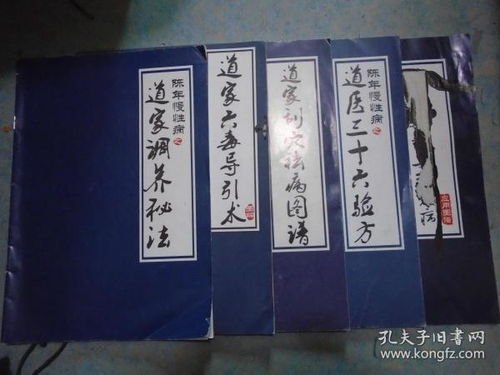 陈年慢性病之
道家调养秘法
道家六毒导引术
道家刺穴祛病图谱
陈年慢性病之
道医三十六验方
病
应用医学
孔夫子旧书网
www.kongfz.com